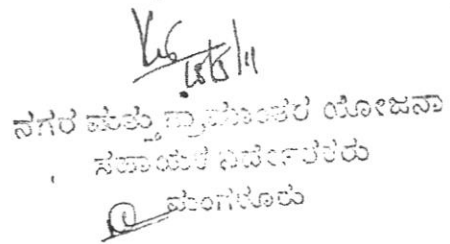 18/5/11
ನಗರ ಮತ್ತು ಗ್ರಾಮಾಂತರ ಯೋಜನಾ
ಸಹಾಯಕ ನಿರ್ದೇಶಕರು
ಮಂಗಳೂರು